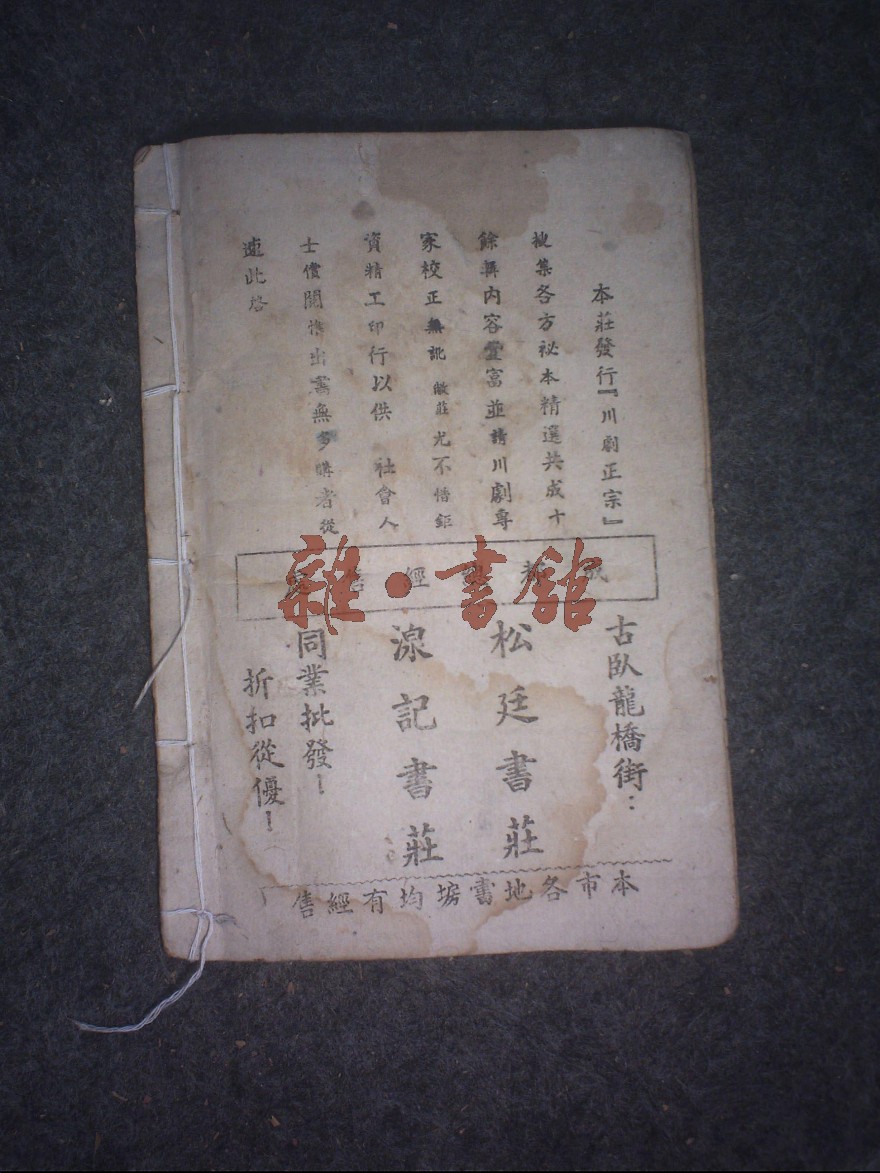 本莊發行『川劇正宗』
搜集各方祕本精選共成十
餘輯內容豐富並請川劇專
家校正無訛 敝莊尤不惜鉅
資精工印行以供 社會人
士償閱惟出書無多購者從
速此啓
成都 經售
雜·書館
古臥龍橋街：
松廷書莊
湶記書莊
同業批發！
折扣從優！
本市各地書塲均有經售